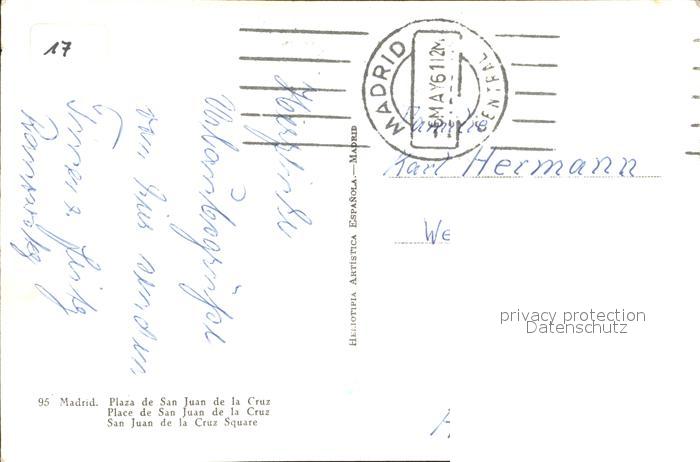 17
MADRID CENTRAL
6 MAY 61 12M
Herzliche
Urlaubsgrüße
von hier senden
Familie
Karl Hermann
We
HELIOTIPIA ARTÍSTICA ESPAÑOLA.—MADRID
privacy protection
Datenschutz
95 Madrid. Plaza de San Juan de la Cruz
Place de San Juan de la Cruz
San Juan de la Cruz Square